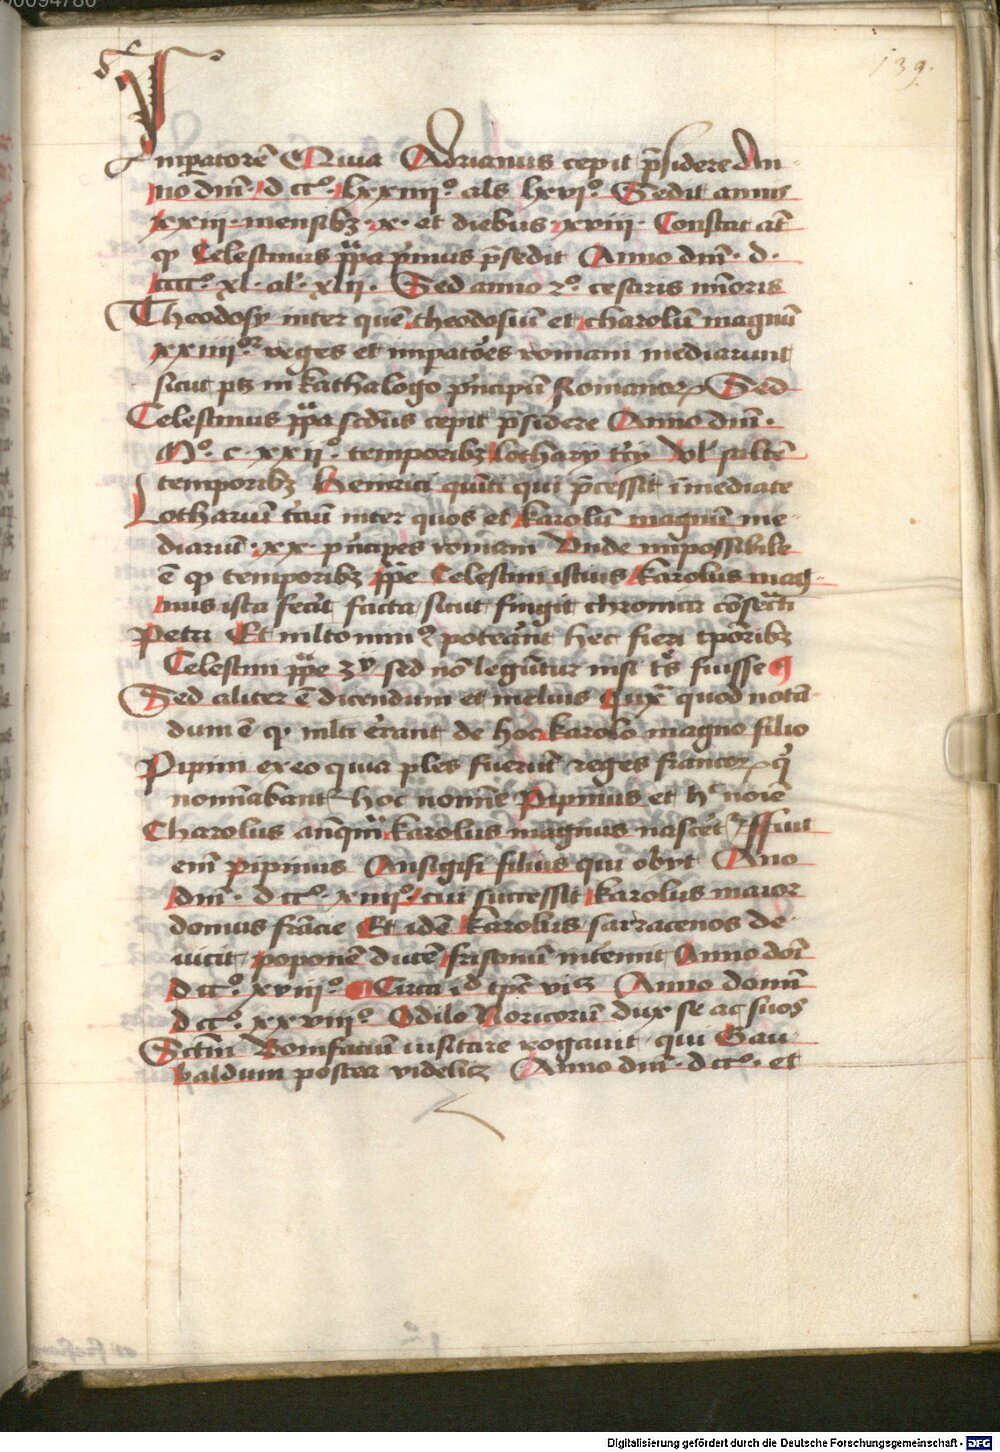 139.
Imꝑatorē Quia Adrianus cepit p̄sidere An
no dn̄i · d ccͦ · lxxiiiiͦ · als lxviͦ · Sedit annis
xxiii · mensibꝫ · x · et diebus · xviii · Constat at̄
ꝙ Celestinus ꝑpa p̄mus p̄sedit Anno dn̄i · d ·
ccccͦ · xl · al · xlii · Sed anno 2ͦ · cesaris mīoris
Theodosij inter quē theodosiū et charolū magnū
xxiiii reges et imꝑatoēs romani mediarunt
sicut ptꝫ in kathalogo p̄ncipū Romanorꝝ Sed
Celestinus ꝑpa scd̄us cepit p̄sidere Anno dn̄i ·
Mͦ · c · xxiiͦ · temporibꝫ lotharij t̄cij Vl saltē
temporibꝫ Henrici quīti qui p̄cessit īmediate
Lothariū t̄ciū inter quos et karolū magnū me
diarūt · xx · p̄ncipes romani Vnde impossibile
ē ꝙ temporibꝫ ꝑpe Celestini istius karolus mag
nus ista fecit facta sicut fingit chronica cōsecrati
Petri Et mltominꝯ potera̅nt hec fieri tꝑoribꝫ
Celestini ꝑpe 3ij sed nō legūtur nisi ts̄ fuisse
Sed aliter ē dicendum et melius quod notā
dum ē ꝙ mlti errant de hoc karolo magno filio
Pipini ex eo quia ples fuerūt reges francorꝝ q
nomīabant hoc nomīe Pipinus et hͨ noīe
Charolus anq̄m karolus magnus nascet ffuit
em̄ pipinus Ansigisi filius qui obijt Ano
dn̄i · d ccͦ · xiiiiͦ · cui successit karolus maior
domus frācie Et idē karolus sarracenos de
uicit poponē ducē frisonū intemit Anno doī
d ccͦ · xviiiͦ · Circa id tꝑe viꝫ Anno domī
d ccͦ · xxviiiͦ Odilo Noricorū dux se ac suos
Sctm̄ Bonifaciū uisitare rogauit qui Gau
baldum postea videlicꝫ Anno dn̄i · d ccͦ · et
Digitalisierung gefördert durch die Deutsche Forschungsgemeinschaft - DFG